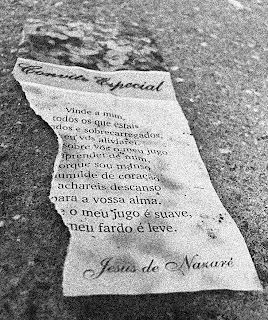 Convite Especial
Vinde a mim,
todos os que estais
dos e sobrecarregados,
eu vos aliviarei.
sobre vós o meu jugo
aprendei de mim,
porque sou manso
umilde de coração
achareis descanso
para a vossa alma.
e o meu jugo é suave,
meu fardo é leve.
Jesus de Nazaré